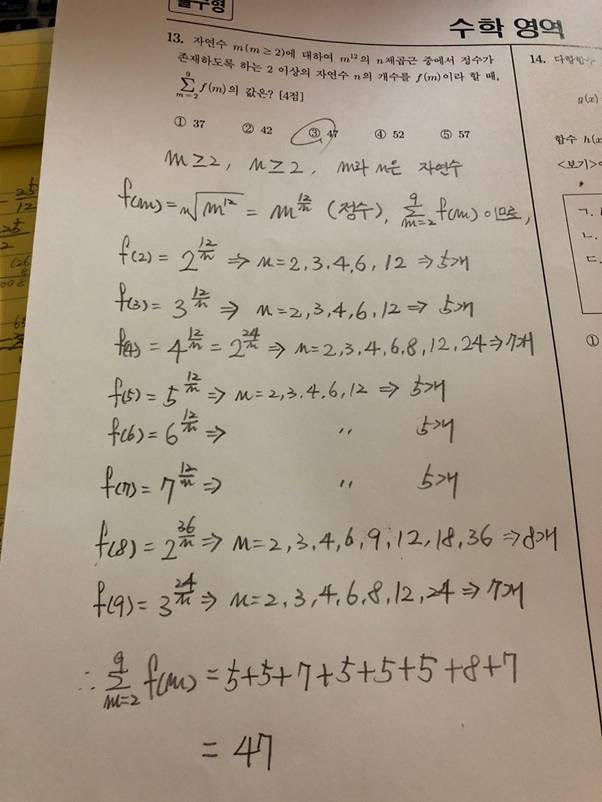 수학 영역
13. 자연수 m(m≥2)에 대하여 m¹²의 n제곱근 중에서 정수가
존재하도록 하는 2 이상의 자연수 n의 개수를 f(m)이라 할 때,
∑_{m=2}^{9} f(m)의 값은? [4점]
① 37 ② 42 ③ 47 ④ 52 ⑤ 57
m≥2, n≥2, m과 n은 자연수
f(m) = ⁿ√m¹² = m^{12/n} (정수), ∑_{m=2}^{9} f(m) 이므로,
f(2) = 2^{12/n} ⇒ n=2,3,4,6,12 ⇒ 5개
f(3) = 3^{12/n} ⇒ n=2,3,4,6,12 ⇒ 5개
f(4) = 4^{12/n} = 2^{24/n} ⇒ n=2,3,4,6,8,12,24 ⇒ 7개
f(5) = 5^{12/n} ⇒ n=2,3,4,6,12 ⇒ 5개
f(6) = 6^{12/n} ⇒ 〃 5개
f(7) = 7^{12/n} ⇒ 〃 5개
f(8) = 2^{36/n} ⇒ n=2,3,4,6,9,12,18,36 ⇒ 8개
f(9) = 3^{24/n} ⇒ n=2,3,4,6,8,12,24 ⇒ 7개
∴ ∑_{m=2}^{9} f(m) = 5+5+7+5+5+5+8+7
= 47
14. 다항함수
g(x)
함수 h(x
<보기>
ㄱ.
ㄴ.
ㄷ.
①